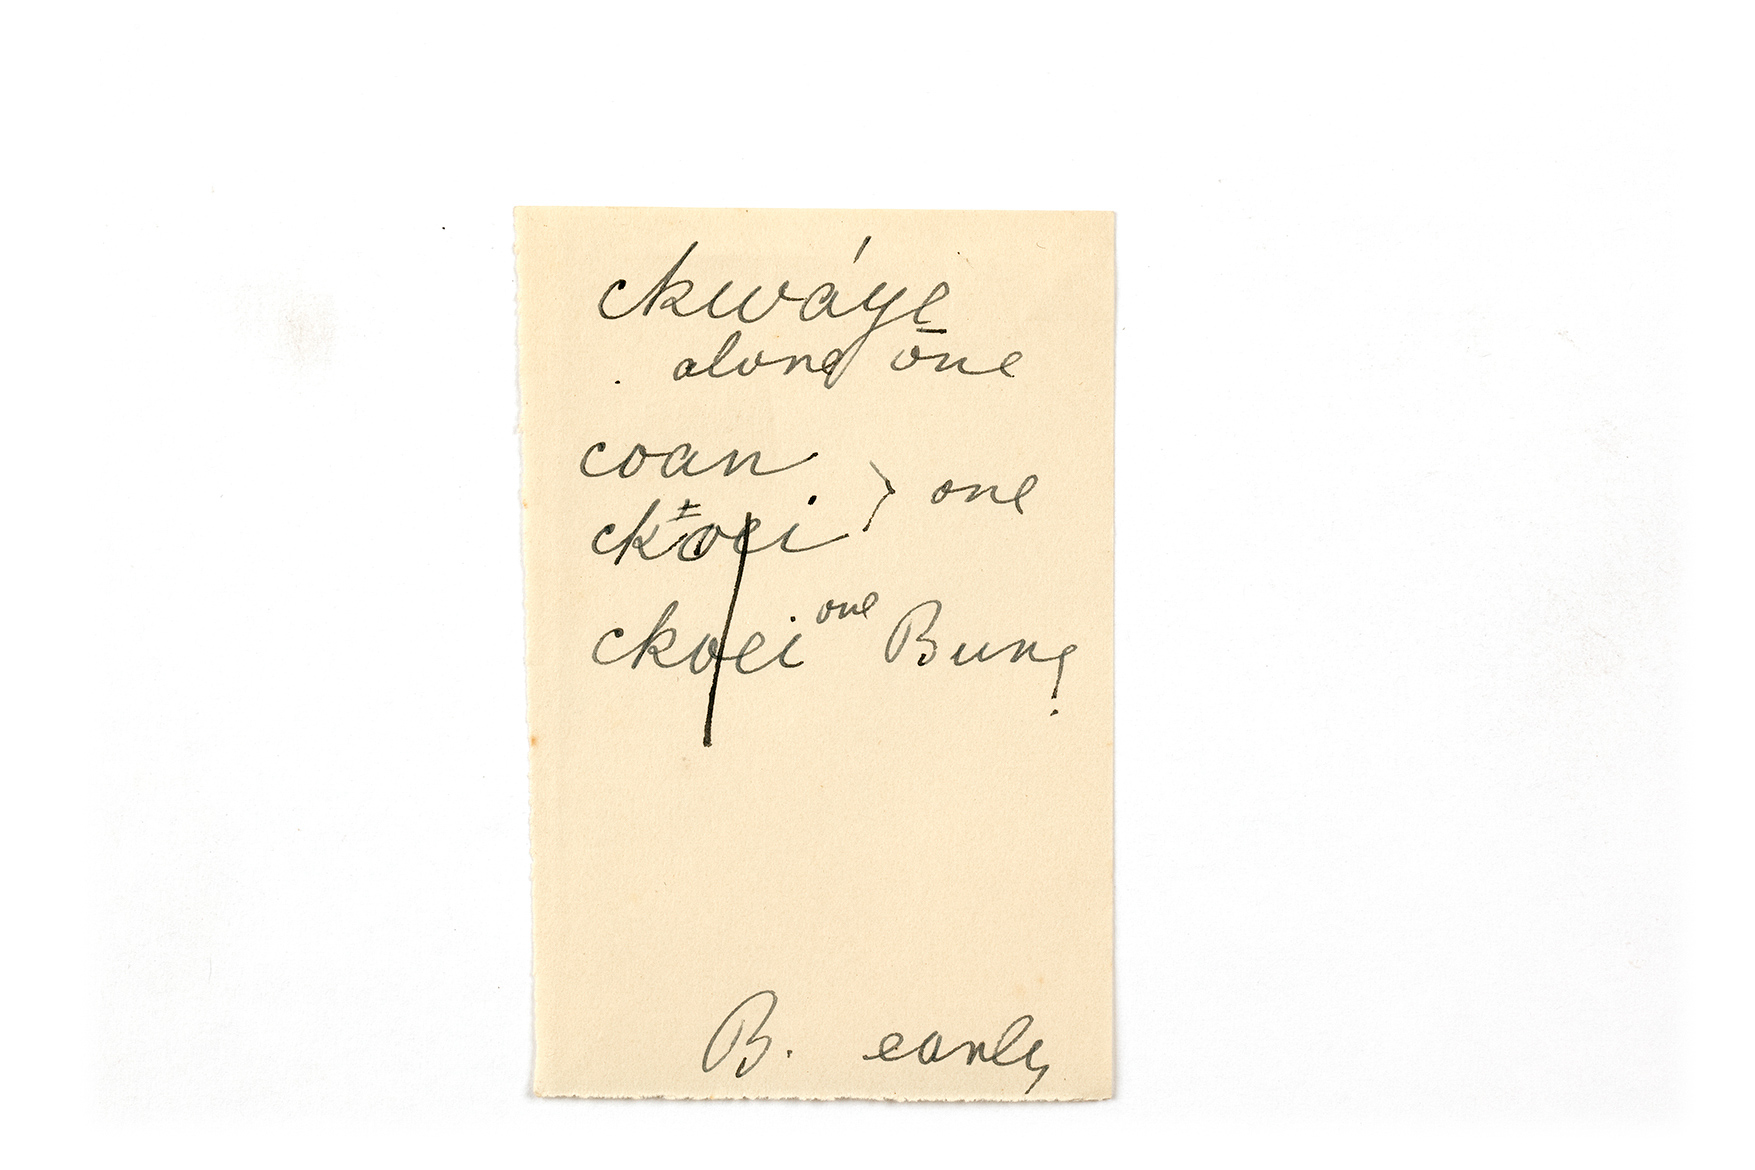 ckwáye
alone one
coan
ck±oei } one
ckoei one Bung
B. early